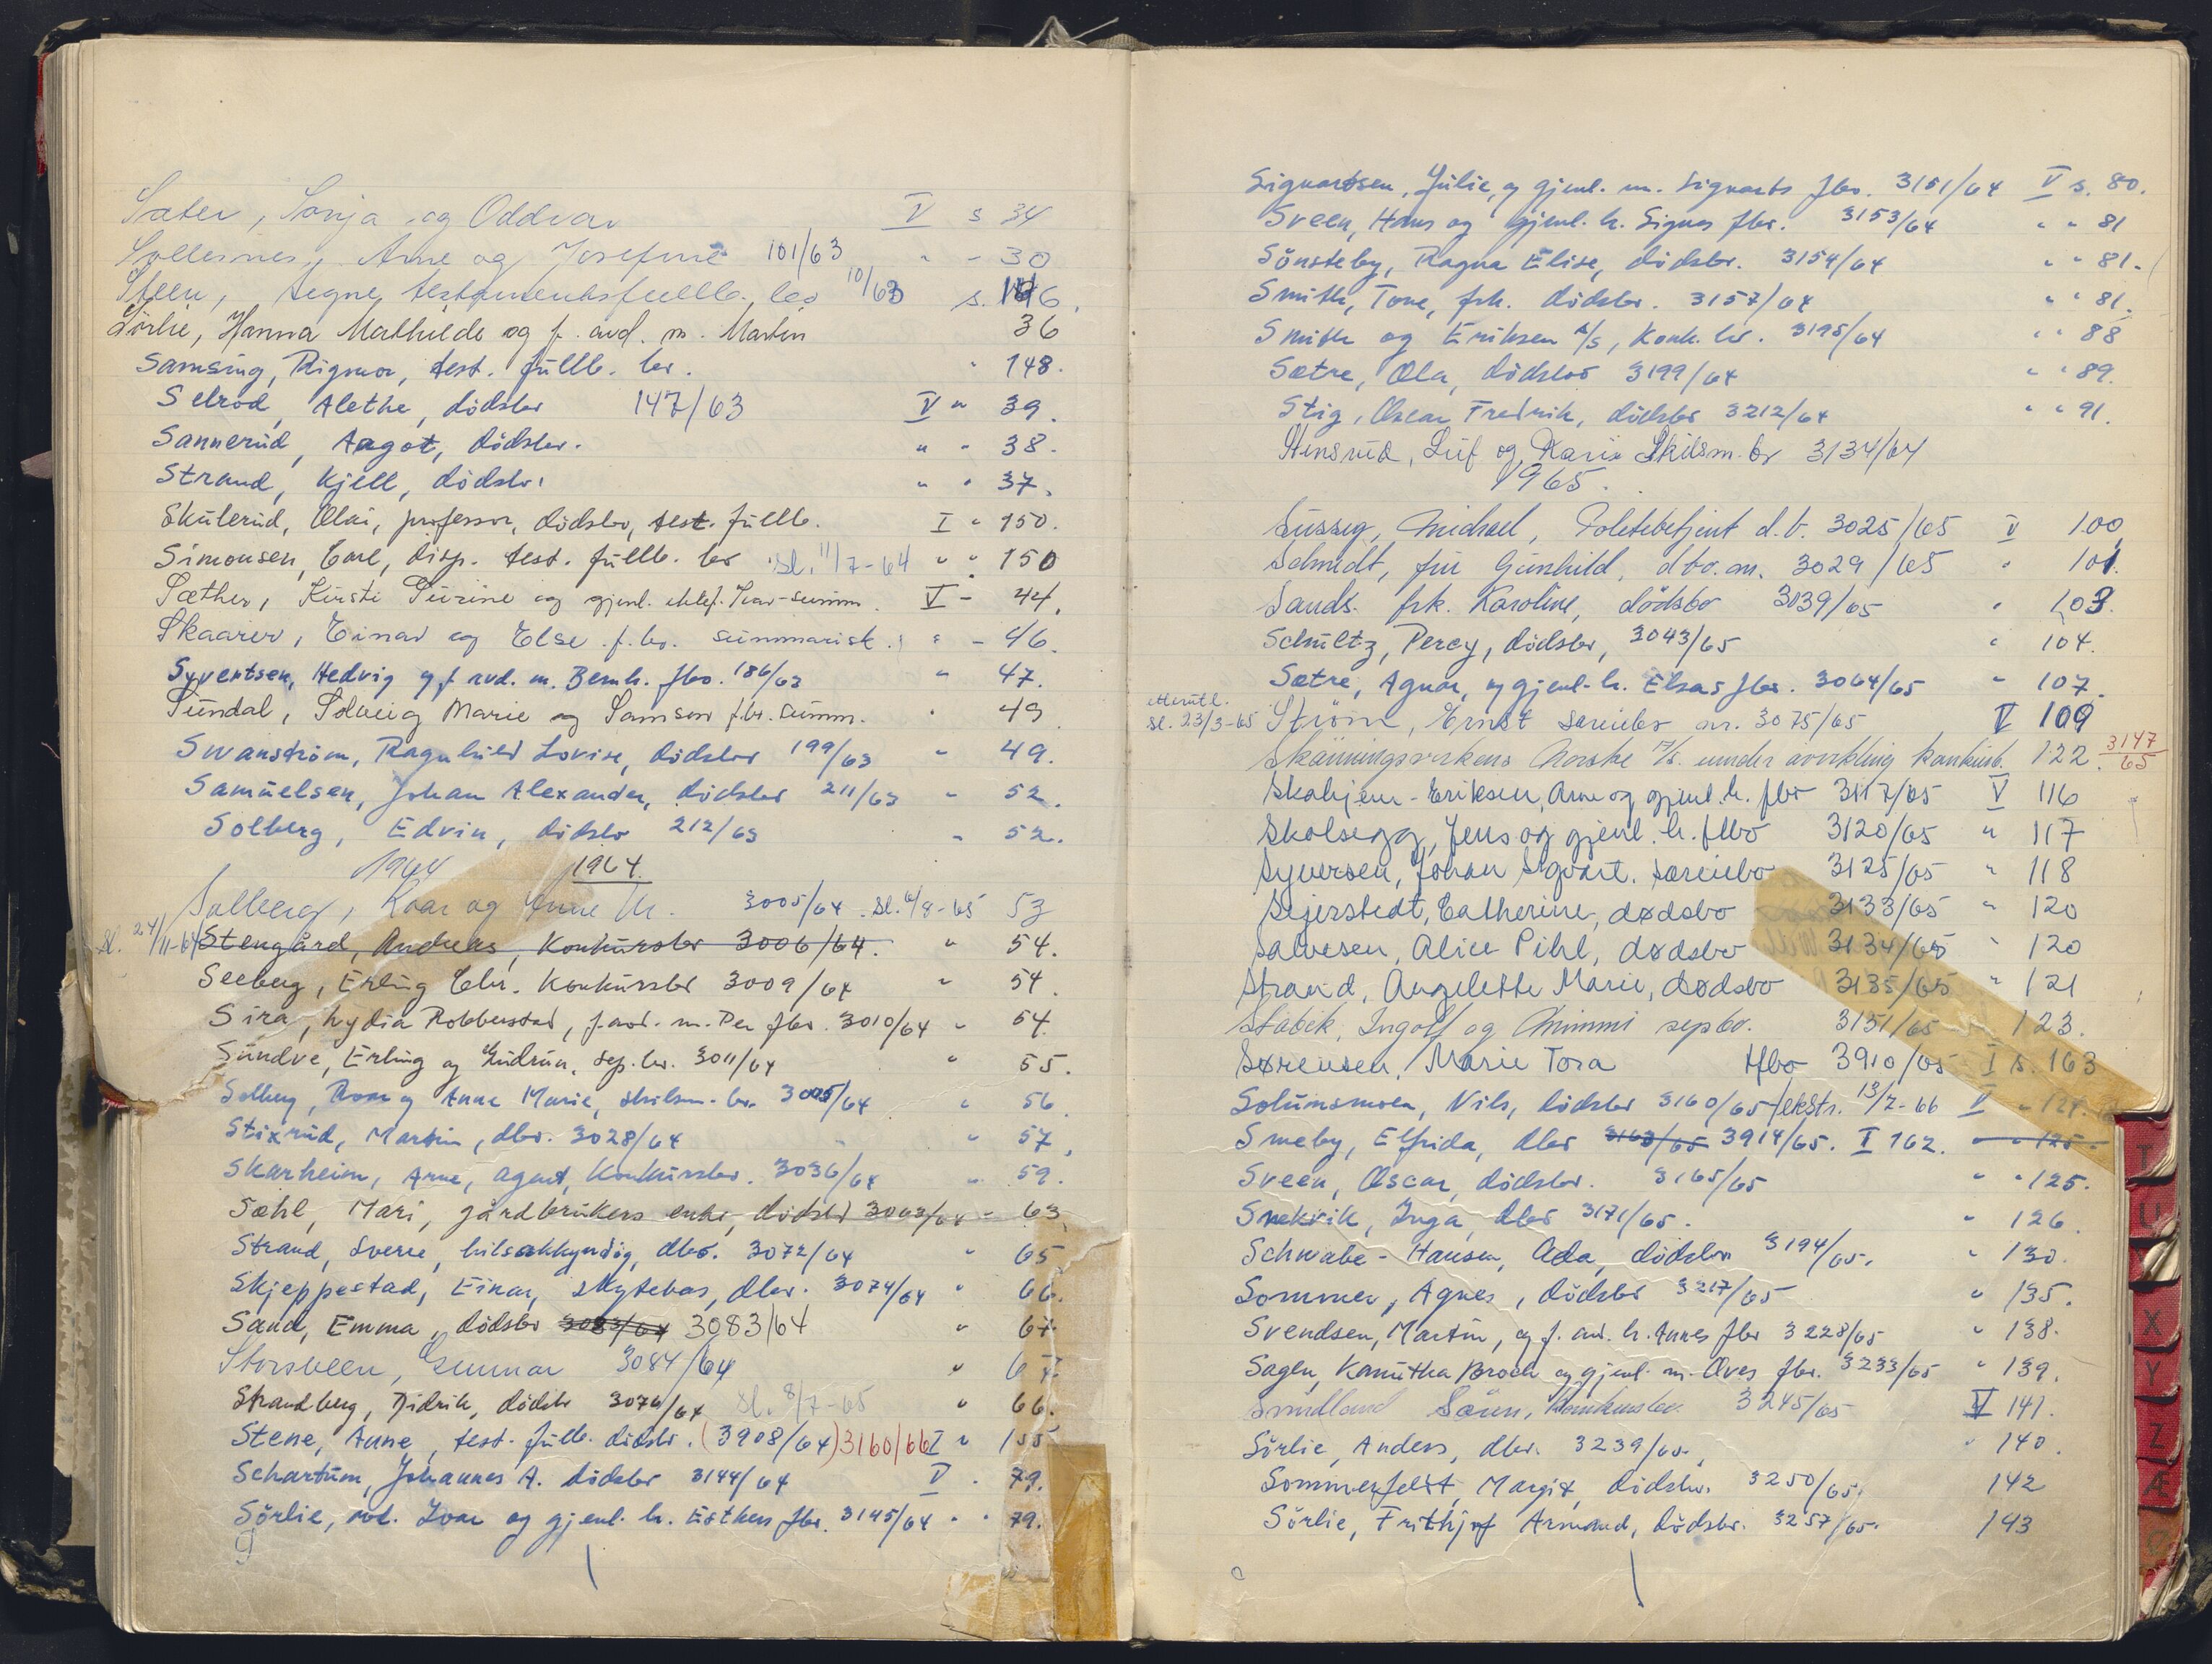 Sæter, Sonja og Oddvar V s 34
Sollesnes, Arne og Josefine 101/63 " - 30
Steen, Signe, testamentsfullb. bo 10/63 s. 146.
Sörlie, Hanna Mathilde og f. avd. m. Martin 36
Samsing, Rigmor, test. fullb. bo. " 148.
Selröd, Alethe, dödsbo 147/63 V " 39.
Sannerud, Aagot, dödsbo. " - 38.
Strand, Kjell, dödsbo. " " 37.
Skulerud, Olai, professor, dödsbo, test. fullb. I " 150.
Simonsen, Carl, disp. test. fullb. bo sl. 11/7-64 " " 150
Sæther, Kirsti Gurine og gjenl. ektef. Ivar-summ. V - 44.
Skaarer, Einar og Else f. bo. summarisk. " - 46.
Syvertsen, Hedvig og f. avd. m. Bernh. fbo. 186/63 " 47.
Sundal, Solveig Marie og Samson f.bo. summ. " 49
Svanström, Ragnhild Lovise, dödsbo 199/63 " 49.
Samuelsen, Johan Alexander, dödsbo 211/63 " 52.
Solberg, Edvin, dödsbo 212/63 " 52.
1964 1964.
Solberg, Roar og Anne M. 3005/64 sl. 6/8-65 53
sl. 24/11-64 Stengård, Andreas, Konkursbo 3006/64. " 54.
Seeberg, Erling Chr. Konkursbo 3009/64 " 54.
Sira, Lydia Robberstad, f. avd. m. Per fbo. 3010/64 " 54.
Sundve, Erling og Gudrun, sep. bo. 3011/64 " 55.
Solberg, Roar og Anne Marie, skilsm. bo. 3005/64 " 56.
Stixrud, Martin, dbo. 3028/64 " 57.
Skarheim, Arne, agent, Konkursbo. 3036/64 " 59.
Sæhl, Mari, gårdbrukers enke, dödsbo 3063/64 - 63.
Strand, Sverre, bilsakkyndig, dbo. 3072/64 " 65
Skjeppestad, Einar, skytebas, dbo. 3074/64 " 66.
Sand, Emma, dödsbo 3083/64 3083/64 " 67.
Storsveen, Gunnar 3084/64 " 67.
Strandberg, Didrik, dödsbo 3076/64 sl. 8/7-65 " 66.
Stene, Anne, test. fullb. dödsbo. (3908/64) 3160/66 I " 155
Schartum, Johannes A. dödsbo 3144/64 V . 79.
Sörlie, avd. Ivar og gjenl. h. Esthers fbo. 3145/64 " " 79.
Sigvartsen, Julie, og gjenl. m. Sigvarts fbo. 3151/64 V s. 80.
Sveen, Hans og gjenl. h. Signes fbo. 3153/64 " " 81
Sönsteby, Ragna Elise, dödsbo. 3154/64 " " 81.
Smith, Tone, frk. dödsbo. 3157/64 " " 81.
Smith og Eriksen A/S, Konk. bo. 3195/64 " " 88
Sætre, Ola, dödsbo 3199/64 " " 89.
Stig, Oscar Fredrik, dödsbo 3212/64 " " 91.
Stensrud, Leif og Karin Skilsm. bo 3134/64
1965.
Süssig, Michael, Politibetjent d.b. 3025/65 V 100
Schmidt, fru Gunhild, dbo. m. 3029/65 " 101.
Sands. frk. Karoline, dödsbo 3039/65 " 103.
Schultz, Percy, dödsbo, 3043/65 " 104.
Sætre, Agnar, og gjenl. h. Elsas fbo. 3064/65 " 107.
sl. 23/3-65 Ström, Ernst særeiebo nr. 3075/65 V 109
Skånningsverkens Norske A/S. under avvikling konkursb. 122. 3147/65
Skahjem-Eriksen, Arne og gjenl. h. fbo 3117/65 V 116
Skolsegg, Jens og gjenl. h. fbo 3120/65 " 117
Syversen, Johan Sigvart. særeiebo 3125/65 " 118
Sejerstedt, Catherine, dødsbo 3133/65 " 120
Salvesen, Alice Pihl, dødsbo 3134/65 " 120
Strand, Angelette Marie, dødsbo 3135/65 " 121
Stabek, Ingolf og Mimmi sepbo. 3151/65 " 123.
Sørensen, Marie Tora tfbo 3910/65 I s. 163
Solumsmoen, Nils, dödsbo 3160/65 /ekstr. 13/7-66 V " 124.
Smeby, Elfrida, dbo 3163/65 3914/65. I 162. " " 125.
Sveen, Oscar, dödsbo. 3165/65 " " 125.
Snekvik, Inga, dbo 3171/65. " 126.
Schwabe-Hansen, Ada, dödsbo 3194/65. " 130.
Sommer, Agnes, dödsbo 3217/65 " 135.
Svendsen, Martin, og f. avd. h. Annes fbo 3228/65 " 138.
Sagen, Kanutha Broch og gjenl. m. Oves fbo. 3233/65 " 139.
Sundland Sören, Konkursbo. 3245/65 V 141.
Sörlie, Anders, dbo. 3239/65. " 140.
Sommerfeldt, Margit, dödsbo. 3250/65. 142
Sörlie, Frithjof Armand, dödsbo. 3257/65. 143
T
U
X
Y
Z
Æ
Ø